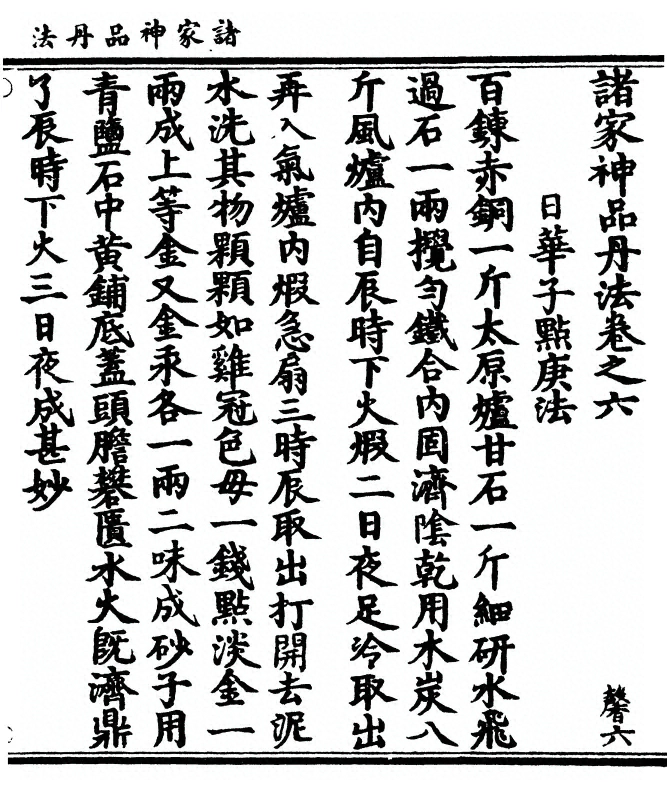 諸家神品丹法
諸家神品丹法卷之六
馨六
日華子點庚法
百鍊赤銅一斤太原爐甘石一斤細研水飛
過石一兩攪勻鐵合內固濟陰乾用木炭八
斤風爐內自辰時下火煅二日夜足冷取出
再入氣爐內煆急扇三時辰取出打開去泥
水洗其物顆顆如雞冠色母一錢點淡金一
兩成上等金又金汞各一兩二味成砂子用
青鹽石中黃鋪底蓋頭膽礬匱水火既濟鼎
了辰時下火三日夜成甚妙